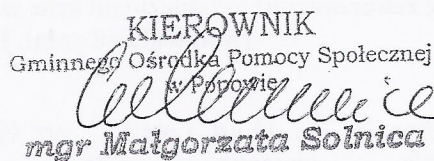 KIEROWNIK
Gminnego Ośrodka Pomocy Społecznej
w Popowie
mgr Małgorzata Solnica